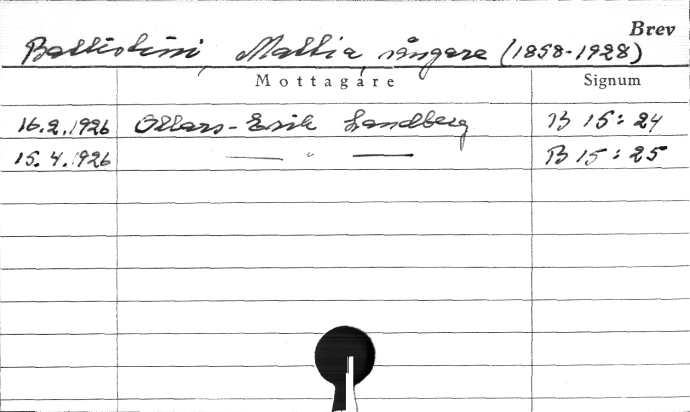 Brev
Battistini, Mattia, sångare (1858-1928)
Mottagare Signum
16.2.1926 Ollars-Erik Landberg B 15:24
15.4.1926 —— " —— B 15:25